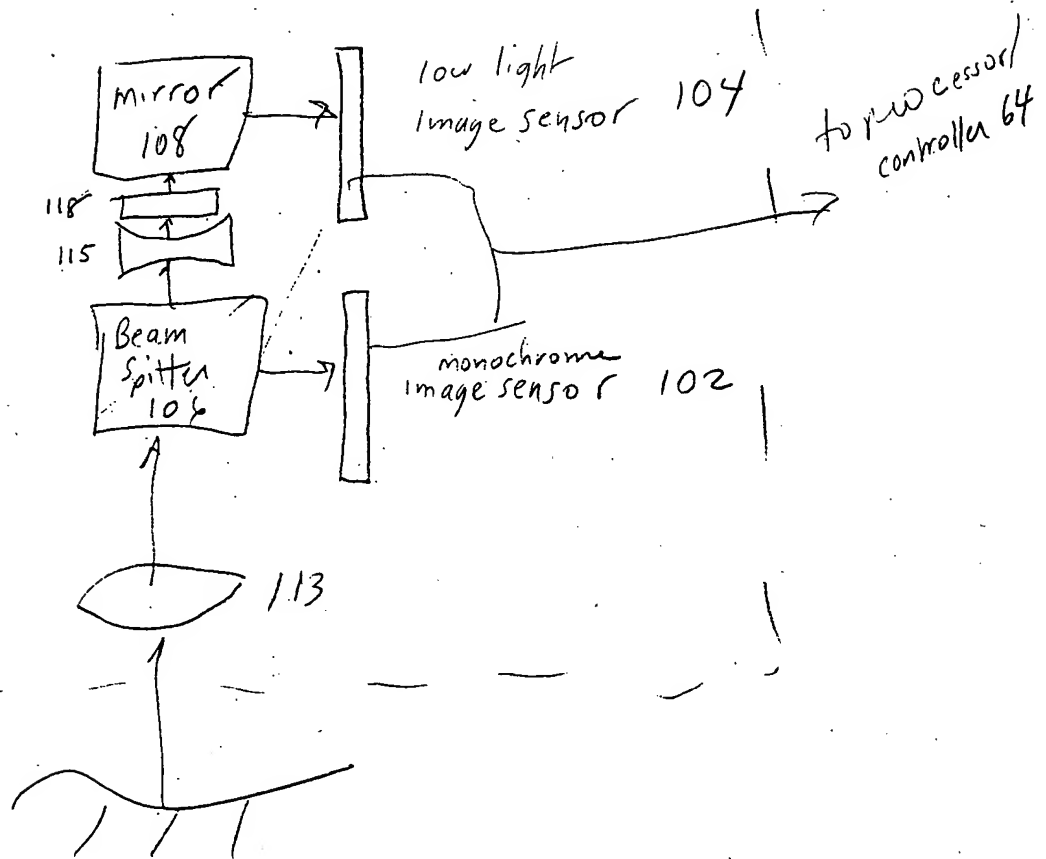 mirror
108
low light
image sensor 104
to processor/
controller 64
118
115
Beam
Spitter
106
monochrome
image sensor 102
113